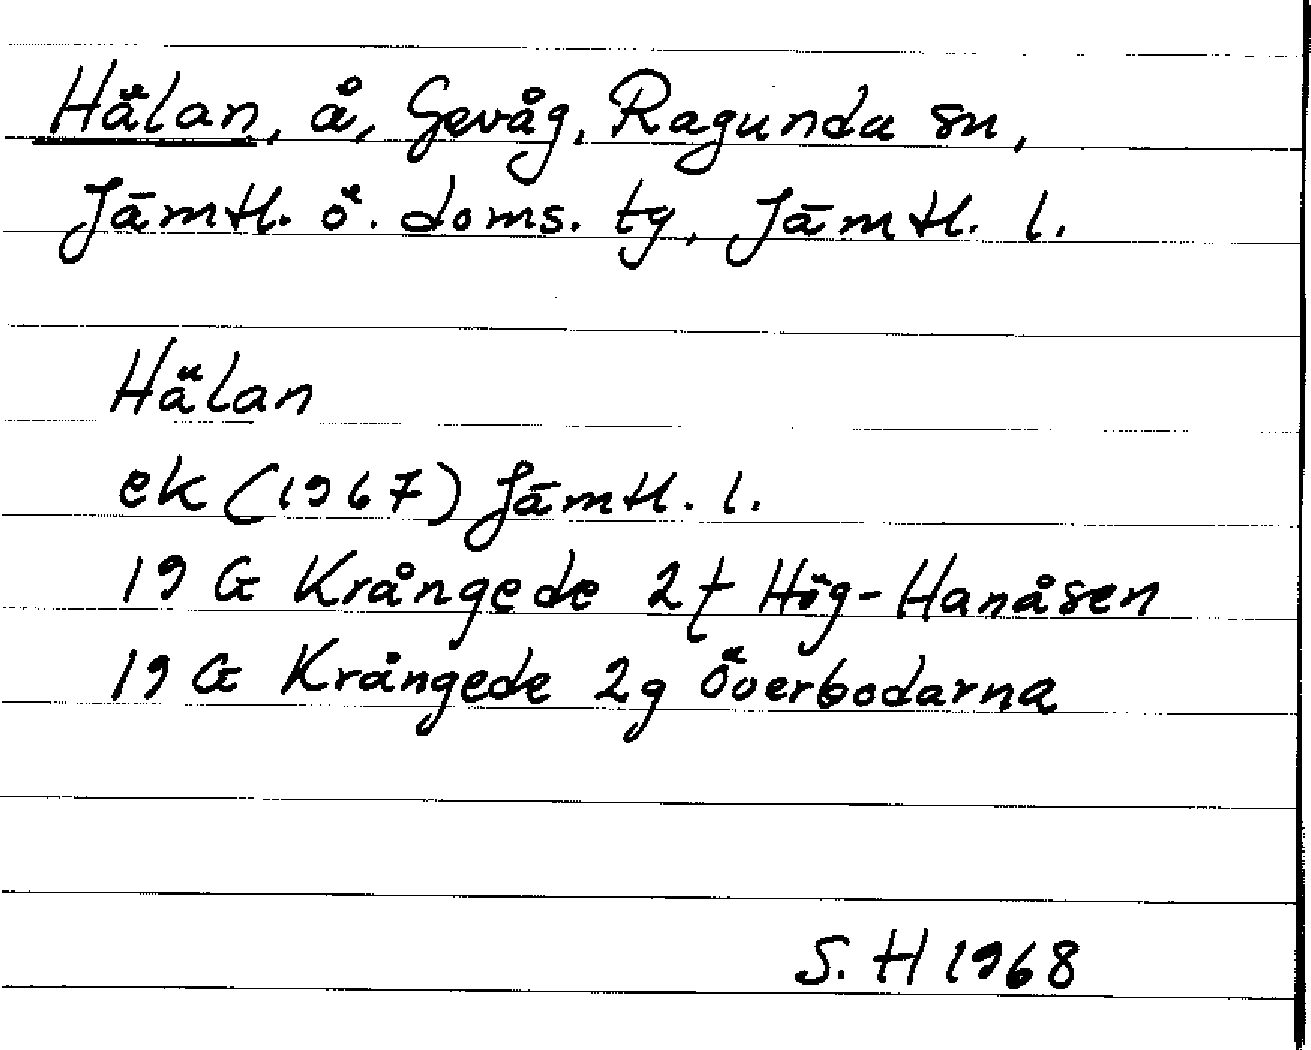 Hälan, å, Gevåg, Ragunda sn,
Jämtl. ö. doms. tg, Jämtl. l.
Hälan
ek (1967) Jämtl. l.
19 G Krångede 2f Hög-Hanåsen
19 G Krångede 2g Överbodarna
S. H 1968